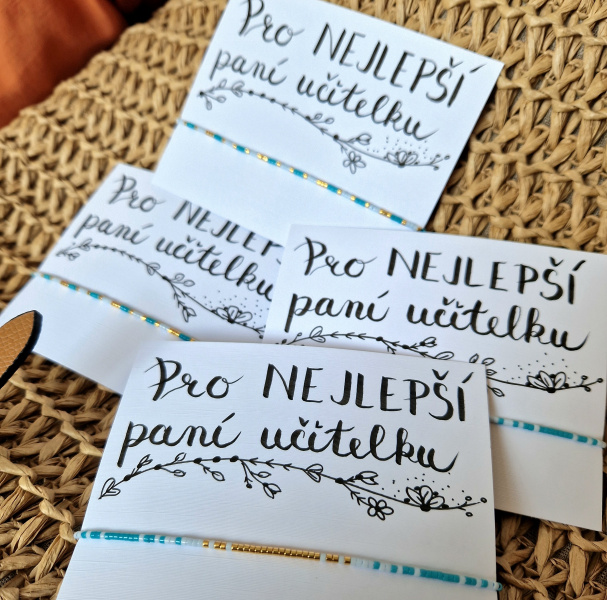 Pro NEJLEPŠÍ
paní učitelku
Pro NEJLEP
paní učitelku
Pro NEJLEPŠÍ
paní učitelku
Pro NEJLEPŠÍ
paní učitelku